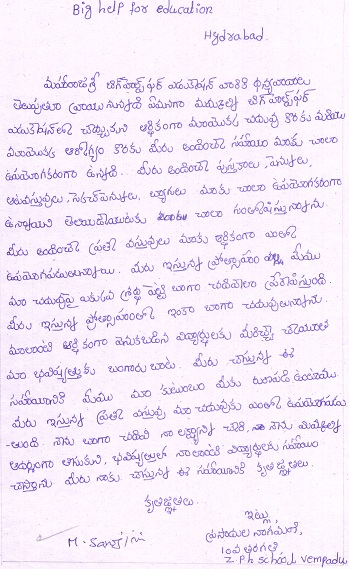 Big help for education
Hydrabad.
మహారాజశ్రీ బిగ్‌హెల్ప్‌ఫర్ ఎడుకేషన్ వారికి ధన్యవాదాలు
తెలుపుతూ వ్రాయునున్నది ఏమనగా మమ్మల్ని బిగ్‌హెల్ప్‌ఫర్
ఎడుకేషన్‌లో చేర్చుకుని ఆర్థికంగా మాయొక్క చదువు కొరకు మరియు
మాయొక్క ఆరోగ్యం కొరకు మీరు అందించే సహాయం మాకు చాలా
ఉపయోగకరంగా ఉన్నది.. మీరు అందించే పుస్తకాలు, పెన్నులు,
ఆటవస్తువులు, స్కెచ్‌పెన్నులు, బ్యాగులు మాకు చాలా ఉపయోగకరంగా
ఉన్నాయని తెలియజేయుటకు చాలా సంతోషిస్తున్నాను.
మీరు అందించే ప్రతి వస్తువులు మాకు ఆర్థికంగా ఎంతో
ఉపయోగపడుతున్నాయి.. మీరు ఇస్తున్న ప్రోత్సాహం మేము
మా చదువుపై ఎక్కువ శ్రద్ధ పెట్టి బాగా చదివేలా ప్రేరేపిస్తుంది.
మీరు ఇస్తున్న ప్రోత్సాహంతో ఇంకా బాగా చదువుతున్నాను.
మాలాంటి ఆర్థికంగా వెనుకబడిన విద్యార్థులకు మీరిచ్చే చేయూత
మా భవిష్యత్తుకు బంగారు బాట. మీరు చేస్తున్న ఈ
సహాయానికి మేము మా కుటుంబం మీకు రుణపడి ఉంటాము.
మీరు ఇస్తున్న ప్రతి వస్తువు మా చదువుకు ఎంతో ఉపయోగపడు
-తుంది. నేను బాగా చదివి నా లక్ష్యాన్ని చేరి, నేను మిమ్మల్ని
ఆదర్శంగా తీసుకుని, భవిష్యత్తులో నాలాంటి విద్యార్థులకు సహాయం
చేస్తాను మీరు నాకు చేస్తున్న ఈ సహాయానికి కృతజ్ఞతలు.
కృతజ్ఞతలు..
ఇట్లు,
ప్రసాదుల నాగమణి,
10వ తరగతి
Z.P.h school, vempadu
M. Sarojini